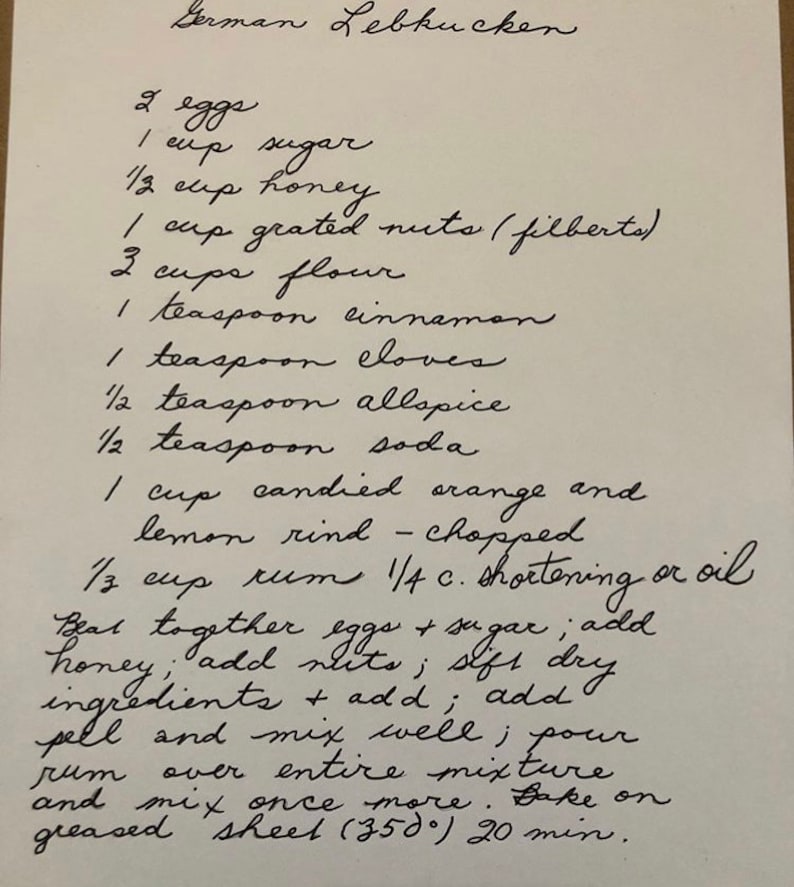 German Lebkucken
2 eggs
1 cup sugar
1/3 cup honey
1 cup grated nuts (filberts)
3 cups flour
1 teaspoon cinnamon
1 teaspoon cloves
1/2 teaspoon allspice
1/2 teaspoon soda
1 cup candied orange and
lemon rind - chopped
1/3 cup rum 1/4 c. shortening or oil
Beat together eggs + sugar; add
honey; add nuts; sift dry
ingredients + add; add
peel and mix well; pour
rum over entire mixture
and mix once more. Bake on
greased sheet (350°) 20 min.